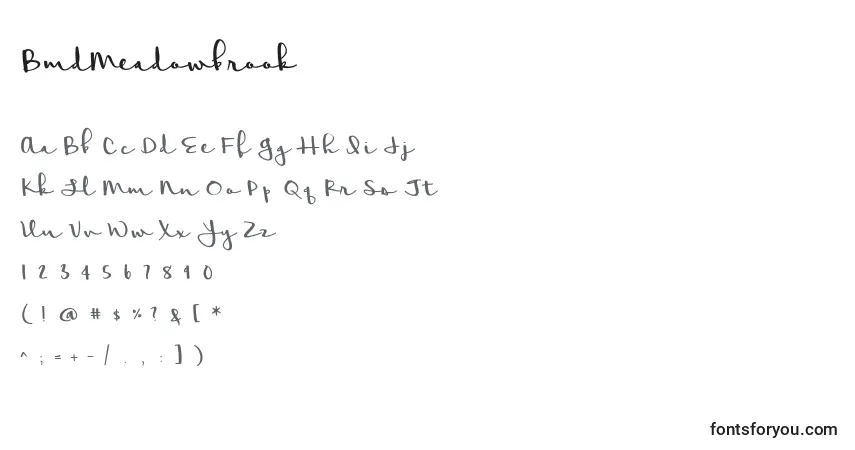 BmdMeadowbrook
Aa Bb Cc Dd Ee Ff Gg Hh Ii Jj
Kk Ll Mm Nn Oo Pp Qq Rr Ss Tt
Uu Vv Ww Xx Yy Zz
1 2 3 4 5 6 7 8 9 0
( ! @ # $ % ? & [ *
^ ; = + - / . , : ] )
fontsforyou.com